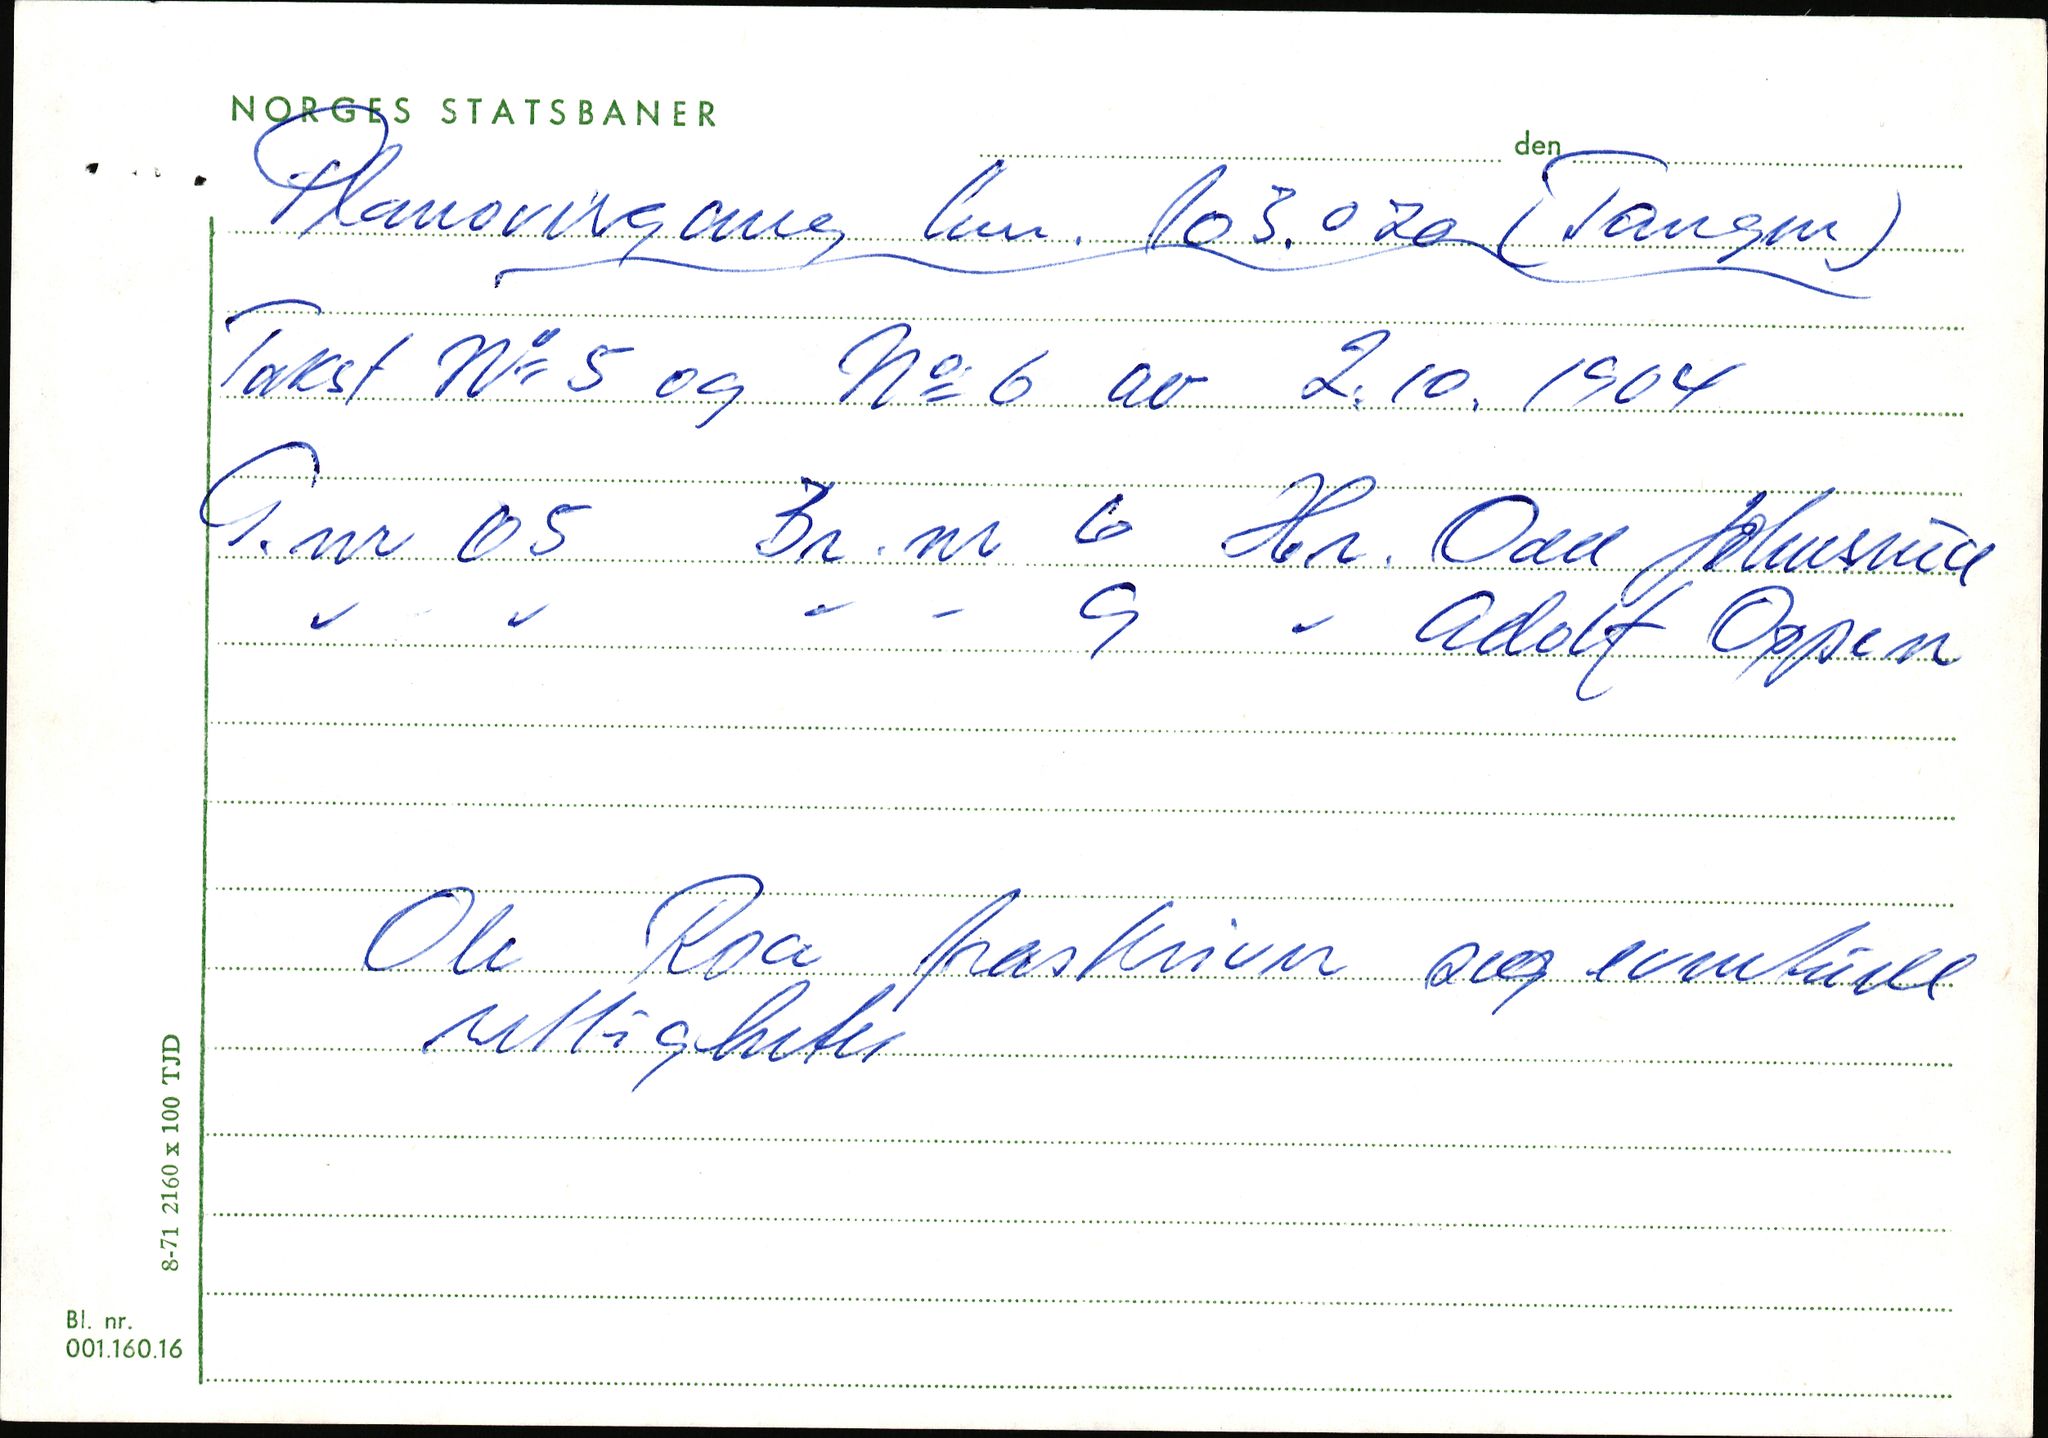 NORGES STATSBANER
den
Planovergang km. 103.020 (Tangen)
Takst No 5 og No 6 av 2.10.1904
G.nr 05 Br.nr 6 Hr. Odd Johnsrud
" " " " 9 " Adolf Oppen
Ole Roa fraskriver seg eventuell
rettigheter
8-71 2160 x 100 TJD
Bl. nr.
001.160.16